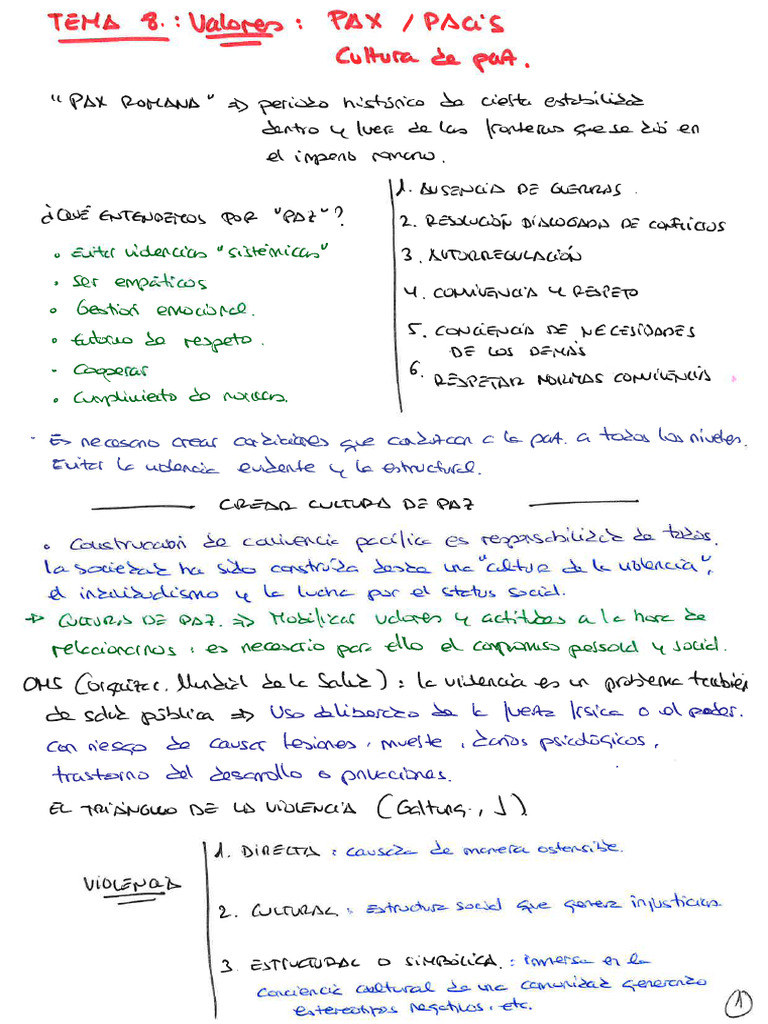 TEMA 8.: Valores: PAX / PACIS
Cultura de paz.
"PAX ROMANA" => periodo histórico de cierta estabilidad
dentro y fuera de las fronteras que se dió en
el imperio romano.
¿QUÉ ENTENDEMOS POR "PAZ"?
• Evitar violencias "sistémicas"
• Ser empáticos
• Gestión emocional.
• Entorno de respeto.
- Cooperar
• Cumplimiento de normas.
1. AUSENCIA DE GUERRAS.
2. RESOLUCIÓN DIALOGADA DE CONFLICTOS
3. AUTORREGULACIÓN
4. CONVIVENCIA Y RESPETO
5. CONCIENCIA DE NECESIDADES
DE LOS DEMÁS
6. RESPETAR NORMAS CONVIVENCIA
- Es necesario crear condiciones que conduzcan a la paz. a todos los niveles.
Evitar la violencia evidente y la estructural.
CREAR CULTURA DE PAZ
• Construcción de convivencia pacífica es responsabilidad de todos.
La sociedad ha sido construida desde una "cultura de la violencia",
el individualismo y la lucha por el status social.
→ CULTURA DE PAZ. => Mobilizar valores y actitudes a la hora de
relacionarnos: es necesario para ello el compromiso personal y social.
OMS (Organizac. Mundial de la Salud): la violencia es un problema también
de salud pública => Uso deliberado de la fuerza física o el poder.
con riesgo de causar lesiones, muerte, daños psicológicos,
trastorno del desarrollo o privaciones.
EL TRIÁNGULO DE LA VIOLENCIA (Galtung., J).
VIOLENCIA
1. DIRECTA: causada de manera ostensible.
2. CULTURAL: Estructura social que genera injusticias.
3. ESTRUCTURAL O SIMBÓLICA.: inmersa en la
conciencia cultural de una comunidad generando
estereotipos negativos. etc.
1